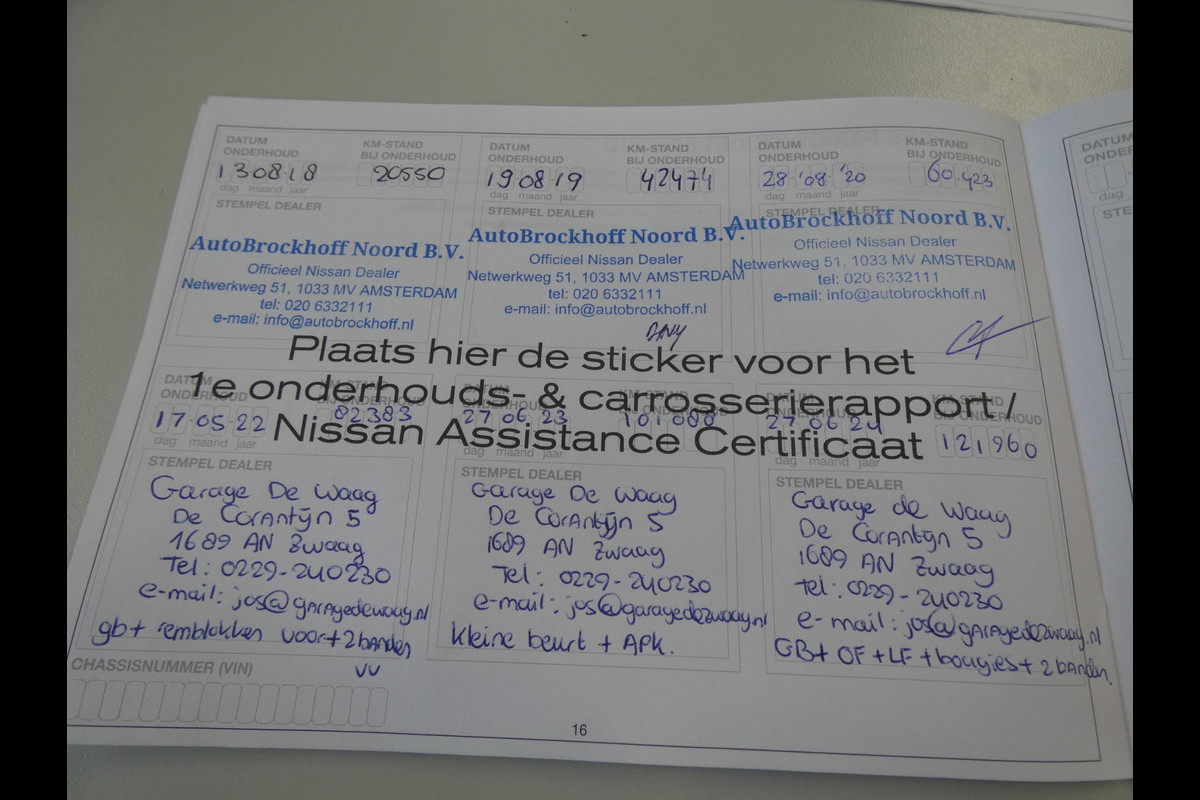 DATUM ONDERHOUD
KM-STAND BIJ ONDERHOUD
130818
20550
dag maand jaar
STEMPEL DEALER
AutoBrockhoff Noord B.V.
Officieel Nissan Dealer
Netwerkweg 51, 1033 MV AMSTERDAM
tel: 020 6332111
e-mail: info@autobrockhoff.nl
DATUM ONDERHOUD
KM-STAND BIJ ONDERHOUD
190819
42474
dag maand jaar
STEMPEL DEALER
AutoBrockhoff Noord B.V.
Officieel Nissan Dealer
Netwerkweg 51, 1033 MV AMSTERDAM
tel: 020 6332111
e-mail: info@autobrockhoff.nl
DATUM ONDERHOUD
KM-STAND BIJ ONDERHOUD
28-'08-'20
60.423
dag maand jaar
STEMPEL DEALER
AutoBrockhoff Noord B.V.
Officieel Nissan Dealer
Netwerkweg 51, 1033 MV AMSTERDAM
tel: 020 6332111
e-mail: info@autobrockhoff.nl
Plaats hier de sticker voor het
1e onderhouds- & carrosserierapport /
Nissan Assistance Certificaat
DATUM ONDERHOUD
KM-STAND BIJ ONDERHOUD
17-05-22
82383
dag maand jaar
STEMPEL DEALER
Garage De Waag
De Corantijn 5
1689 AN Zwaag
Tel: 0229-240230
e-mail: jos@garagedewaag.nl
gb+ remblokken voor+2banden
VV
DATUM ONDERHOUD
KM-STAND BIJ ONDERHOUD
27 06 23
101088
dag maand jaar
STEMPEL DEALER
Garage De Waag
De Corantijn 5
1689 AN Zwaag
Tel: 0229-240230
e-mail: jos@garagedewaag.nl
kleine beurt + APK.
DATUM ONDERHOUD
KM-STAND BIJ ONDERHOUD
27 06 24
121960
dag maand jaar
STEMPEL DEALER
Garage de Waag
De Corantijn 5
1689 AN Zwaag
tel: 0229-240230
e-mail: jos@garagedewaag.nl
GB+ OF+LF+bougies+2banden.
CHASSISNUMMER (VIN)
16